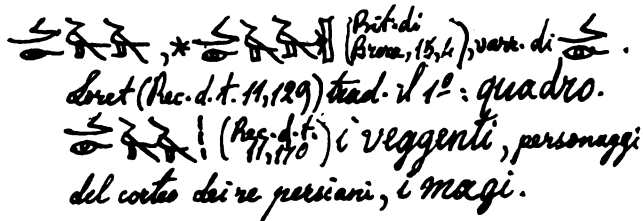 , * (Rit. di Bronz., 15, 4), varr. di .
Loret (Rec. d. t. 11, 129) trad. il 1º : quadro.
! (Rec. d. t. 17, 170) i veggenti, personaggi
del corteo dei re persiani, i magi.